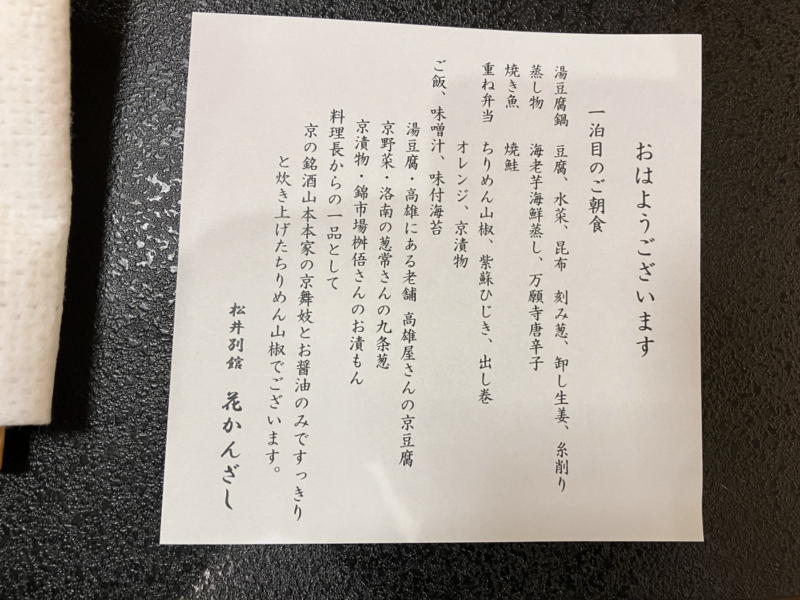 おはようございます
一泊目のご朝食
湯豆腐鍋 豆腐、水菜、昆布 刻み葱、卸し生姜、糸削り
蒸し物 海老芋海鮮蒸し、万願寺唐辛子
焼き魚 焼鮭
重ね弁当 ちりめん山椒、紫蘇ひじき、出し巻
オレンジ、京漬物
ご飯、味噌汁、味付海苔
湯豆腐・高雄にある老舗 高雄屋さんの京豆腐
京野菜・洛南の葱常さんの九条葱
京漬物・錦市場桝悟さんのお漬もん
料理長からの一品として
京の銘酒山本本家の京舞妓とお醤油のみですっきり
と炊き上げたちりめん山椒でございます。
松井別館 花かんざし